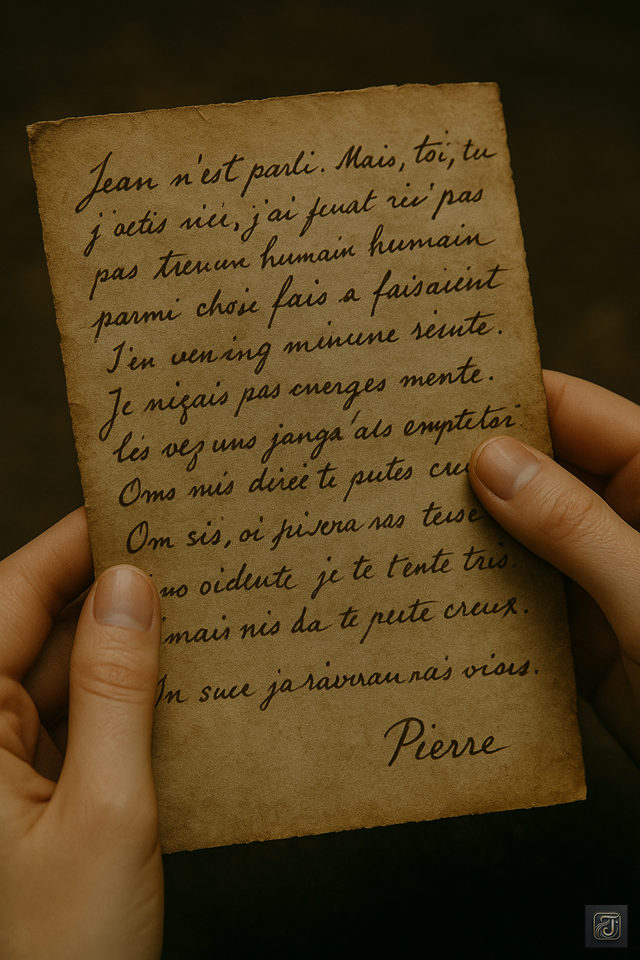 Jean n'est parli. Mais, toi, tu
j'oetis niei, j'ai fuuat rei' pas
pas treuun humain humain
parmi chose fais a faisaient
J'en vening minune resute.
Je nigais pas cnerges mente.
les vez uns janga'als emptetsi.
Oms mis diree te putes
Om sis, oi pisera nas teuse
oidente je te tente tris.
mais nis da te peute creux.
suce ja raverau nas visis.
Pierre